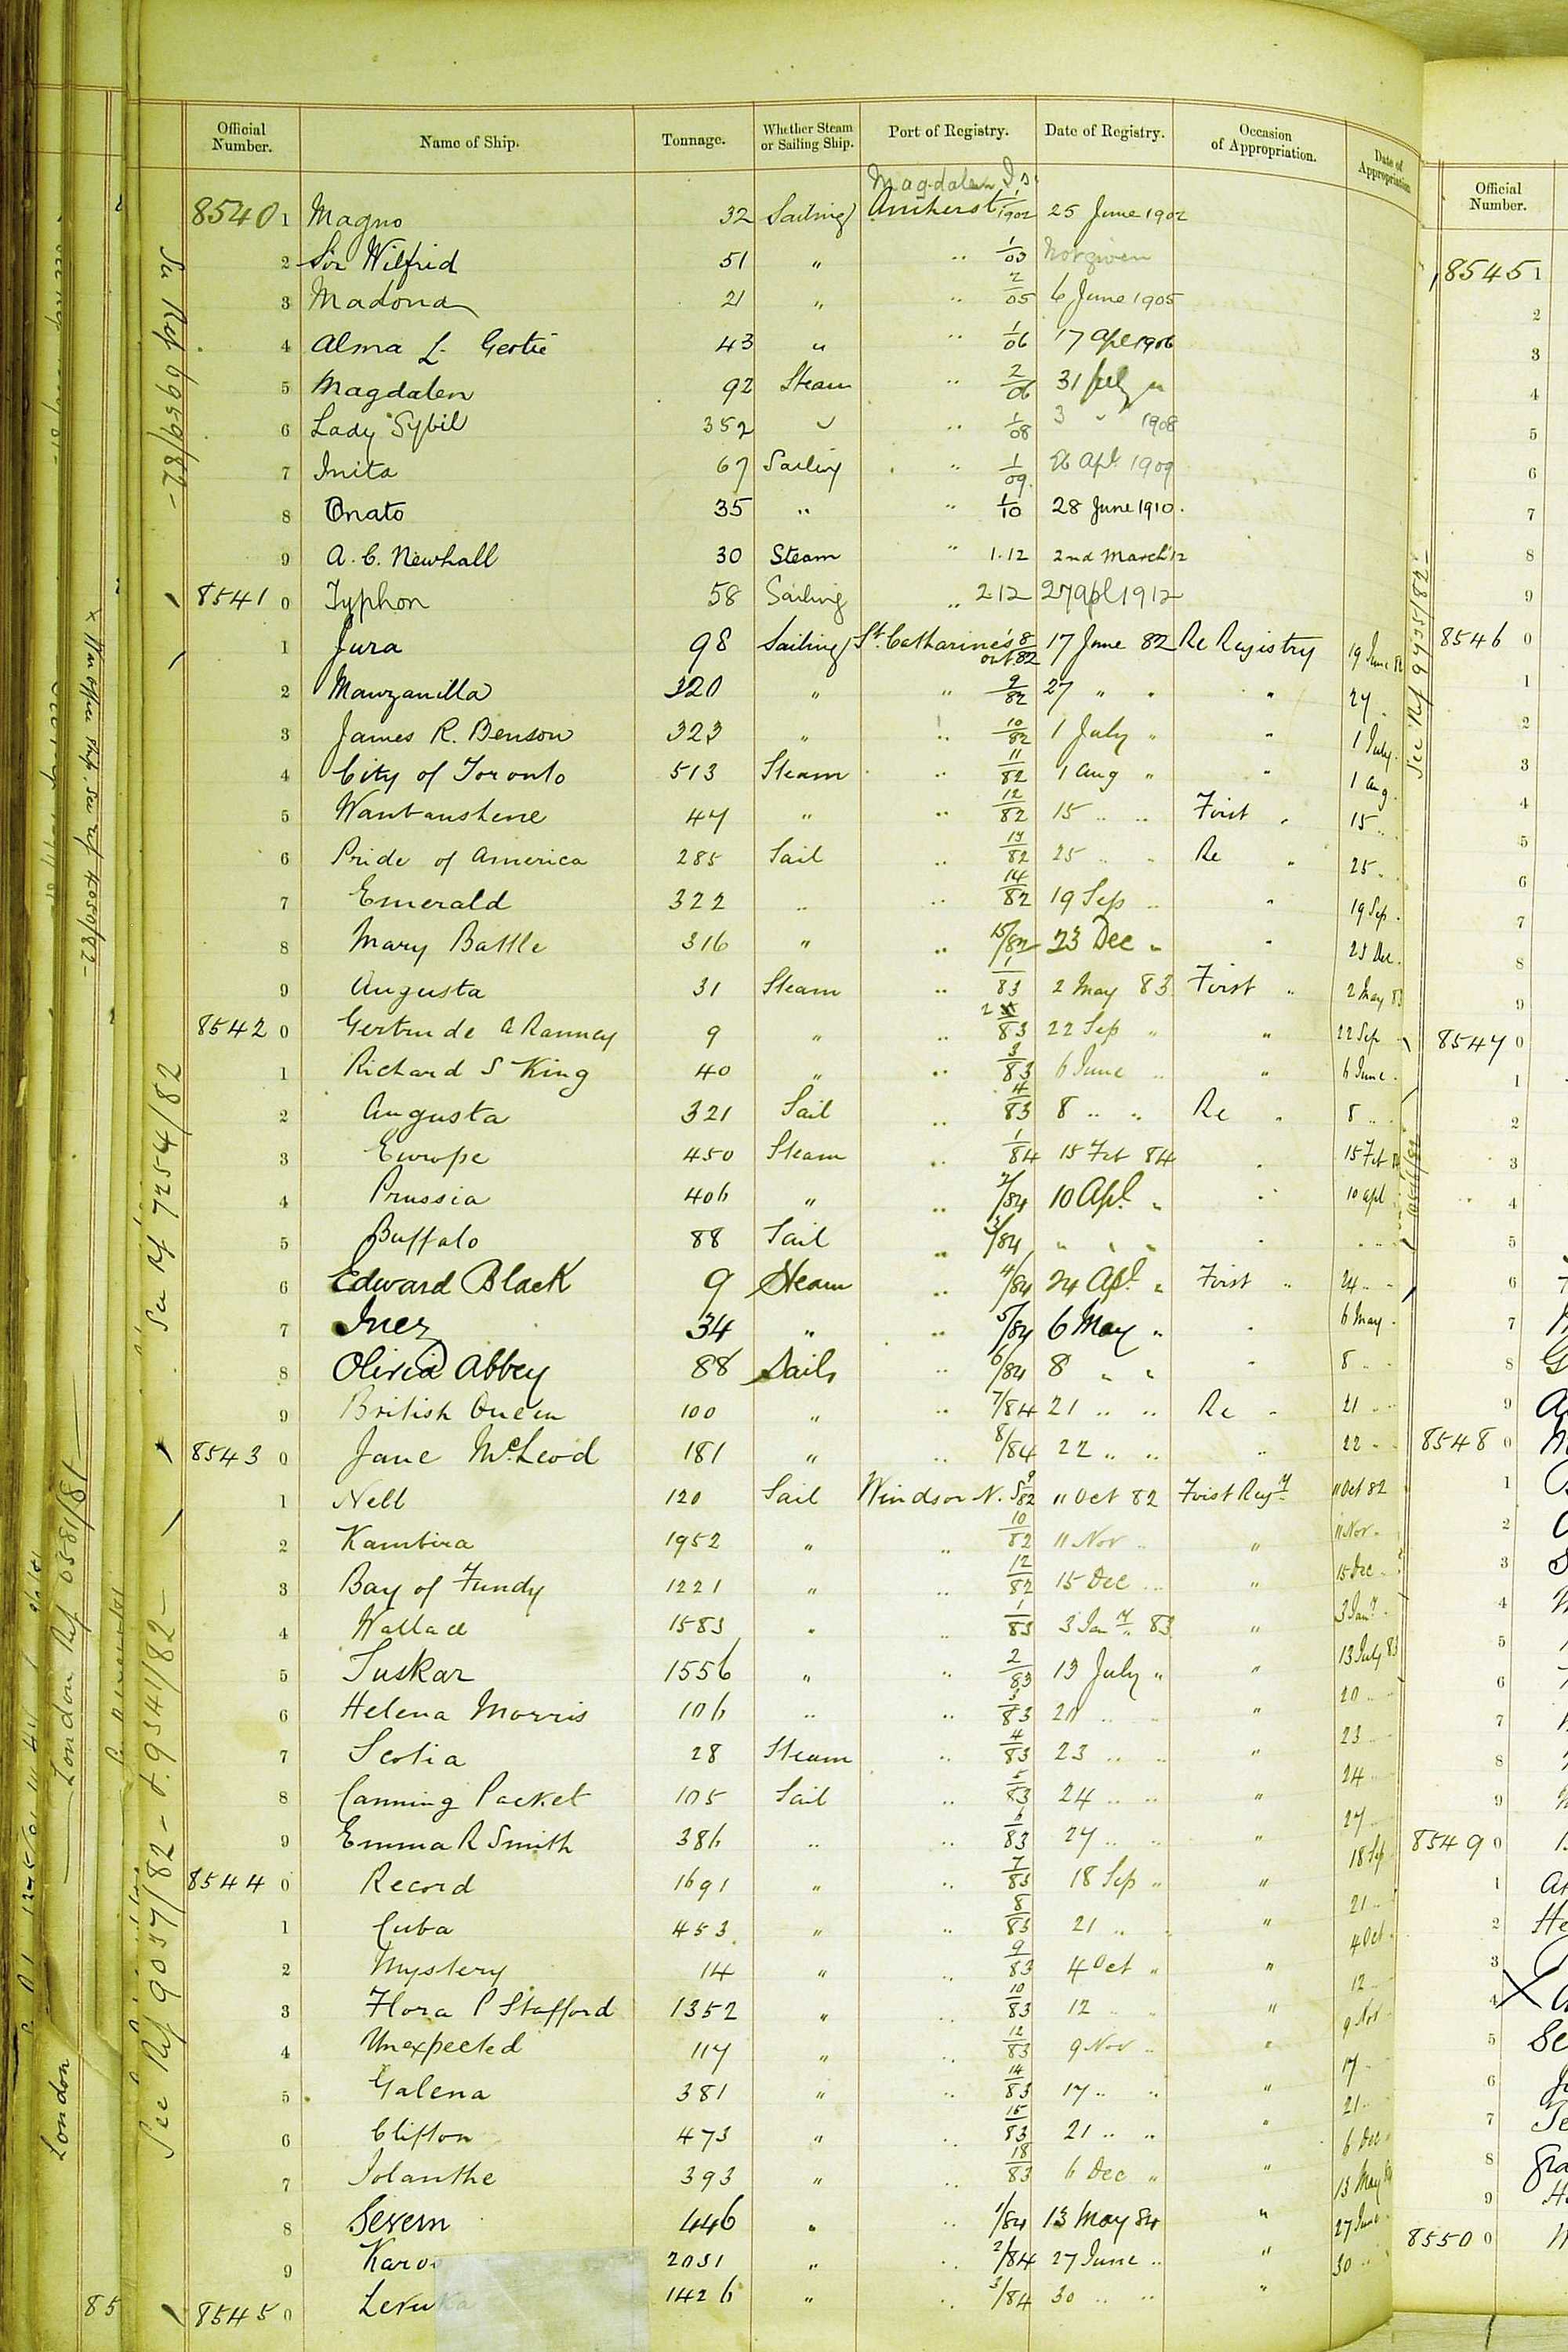 Official Number. Name of Ship. Tonnage. Whether Steam or Sailing Ship. Port of Registry. Date of Registry. Occasion of Appropriation. Date of Appropriation
Magdalen Is.
8540 1 Magno 32 Sailing Amherst 1/1902 25 June 1902
2 Sir Wilfrid 51 " .. 1/03 Not given
3 Madona 21 " .. 2/05 6 June 1905
4 Alma L. Gertie 43 " .. 1/06 17 Apl 1906
5 Magdalen 92 Steam .. 2/06 31 July "
6 Lady Sybil 352 " .. 1/08 3 " 1908
7 Inita 67 Sailing " 1/09 26 Apl 1909
8 Onato 35 " .. 1/10 28 June 1910.
9 A. C. Newhall 30 Steam " 1.12 2nd March 12
8541 0 Typhon 58 Sailing .. 2 12 27 apl 1912
1 Jura 98 Sailing St. Catharine's Ont 8/82 17 June 82 Re Registry 19 June 82
2 Manzanilla 320 " " 9/82 27 " " " 27 .
3 James R. Benson 323 " .. 10/82 1 July " " 1 July.
4 City of Toronto 513 Steam .. 11/82 1 Aug " " 1 Aug.
5 Wanbaushene 47 " .. 12/82 15 .. .. First . 15 ..
6 Pride of America 285 Sail .. 13/82 25 .. .. Re " 25 ..
7 Emerald 322 .. .. 14/82 19 Sep .. " 19 Sep .
8 Mary Battle 316 " .. 15/82 23 Dec " " 23 Dec.
9 Augusta 31 Steam .. 1/83 2 May 83 First .. 2 May 83
8542 0 Gertrude A Ranney 9 " .. 2/83 22 Sep " " 22 Sep
1 Richard S King 40 " .. 3/83 6 June .. " 6 June .
2 Augusta 321 Sail .. 4/83 8 .. .. Re " 8 ..
3 Europe 450 Steam .. 1/84 15 Feb 84 . 15 Feb 84
4 Prussia 406 " .. 2/84 10 Apl. " .. 10 apl
5 Buffalo 88 Sail .. 3/84 " " " " .. ..
6 Edward Black 9 Steam .. 4/84 24 Apl. " First .. 24 .. ..
7 Inez 34 " .. 5/84 6 May " " 6 May .
8 Olivia Abbey 88 Sails .. 6/84 8 " " " 8 .. ..
9 British Queen 100 " .. 7/84 21 .. .. Re .. 21 .. ..
8543 0 Jane McLeod 181 " .. 8/84 22 .. .. .. 22 .. ..
1 Nell 120 Sail Windsor N. S 9/82 11 Oct 82 First Regy 11 Oct 82
2 Kambira 1952 " .. 10/82 11 Nov .. " 11 Nov .
3 Bay of Fundy 1221 " .. 12/82 15 Dec .. " 15 Dec ..
4 Wallace 1583 " .. 1/83 3 Jany 83 " 3 Jany.
5 Tuskar 1556 " .. 2/83 13 July " " 13 July 83
6 Helena Morris 106 .. .. 3/83 20 .. .. " 20 .. ..
7 Scotia 28 Steam .. 4/83 23 .. .. " 23 .. ..
8 Canning Packet 105 Sail .. 5/83 24 .. .. " 24 ..
9 Emma R Smith 386 .. .. 6/83 27 .. .. " 27 ..
8544 0 Record 1691 " .. 7/83 18 Sep .. " 18 Sep
1 Cuba 453 " .. 8/83 21 .. .. " 21 ..
2 Mystery 14 " .. 9/83 4 Oct " " 4 Oct .
3 Flora P Stafford 1352 " .. 10/83 12 .. .. " 12 ..
4 Unexpected 117 " .. 12/83 9 Nov .. " 9 Nov
5 Galena 381 " .. 14/83 17 .. .. " 17 ..
6 Clifton 473 " .. 15/83 21 .. .. " 21 ..
7 Iolanthe 393 " .. 18/83 6 Dec " " 6 Dec
8 Severn 446 " .. 1/84 13 May 84 " 13 May 84
9 Karo 2051 " .. 2/84 27 June .. " 27 June
8545 0 Levuka 1426 " .. 3/84 30 .. .. " 30 ..
See Ref 6959/82-
See Rf 7254/82
See Rf 9057/82 - & 9341/82 -
x War office Ship. See ref 4050/82-
London Rf 0581/81
London
85
See Ref 9435/82-
Official Number.
8545 1
2
3
4
5
6
7
8
9
8546 0
1
2
3
4
5
6
7
8
9
8547 0
1
2
3
4
5
6
7
8
9
8548 0
1
2
3
4
5
6
7
8
9
8549 0
1
2
3
4
5
6
7
8
9
8550 0